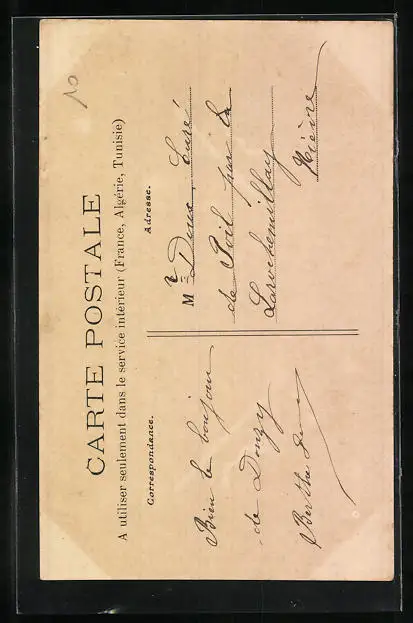 10
CARTE POSTALE
A utiliser seulement dans le service intérieur (France, Algérie, Tunisie)
Correspondance.
Bien le bonjour
de Donzy
Berthe
Adresse.
Mr Doux, Curé
de Poil par la
Larochemillay
Nièvre